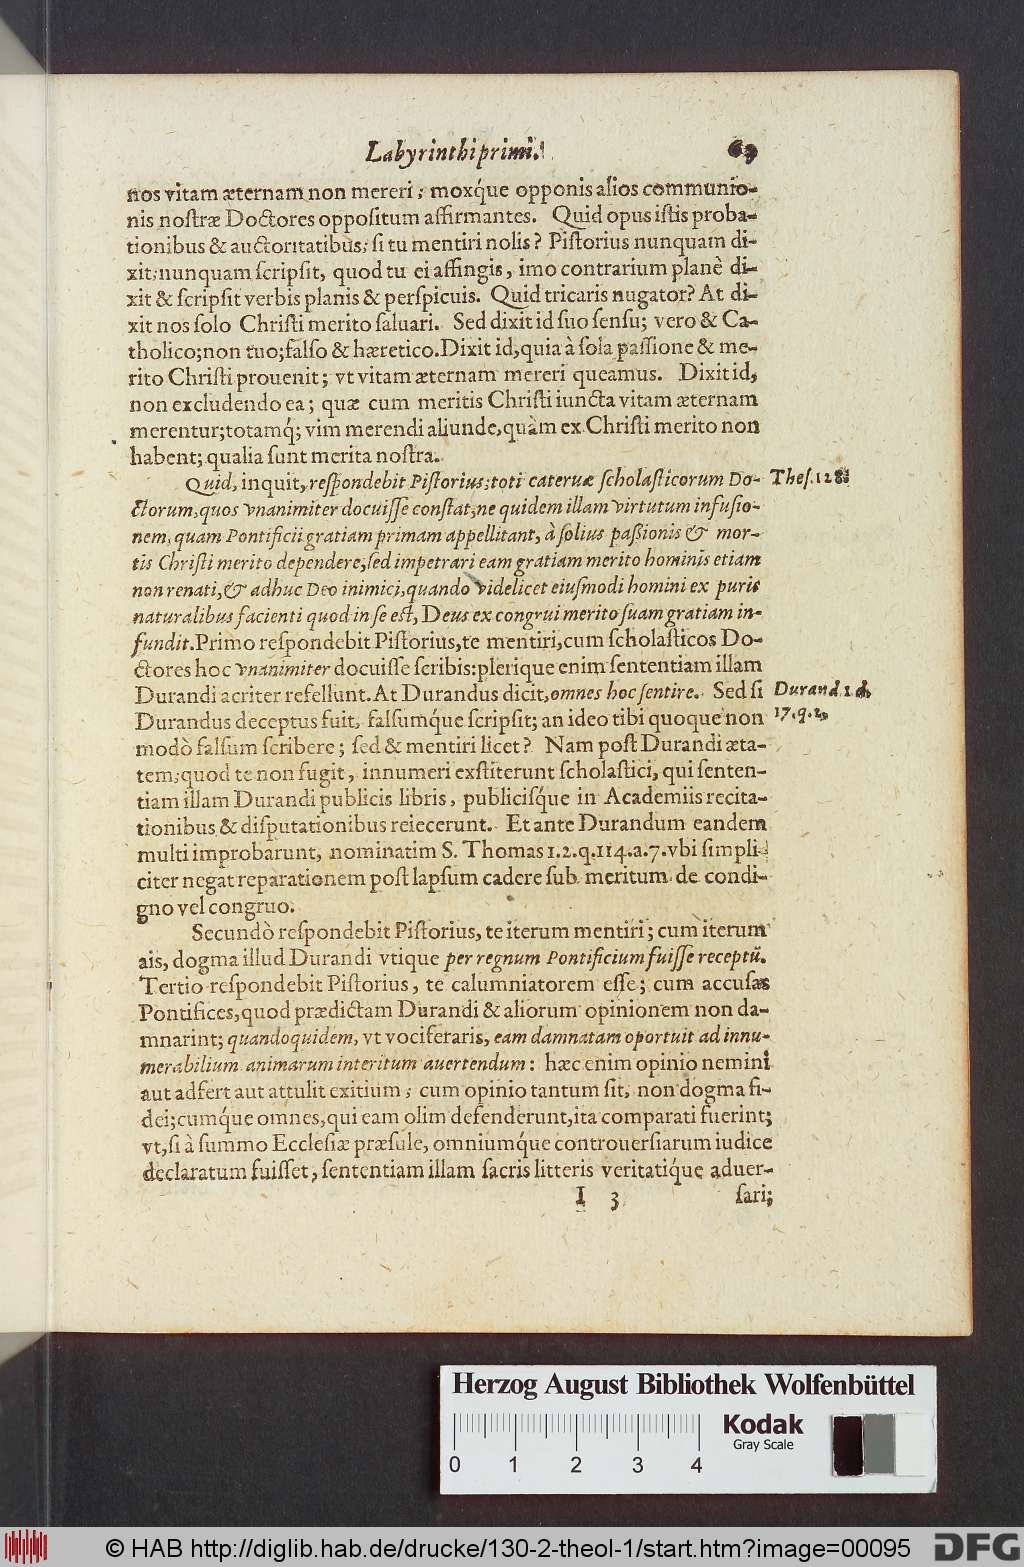 Labyrinthi primi. 69
nos vitam æternam non mereri; moxq́ue opponis alios communio-
nis nostræ Doctores oppositum affirmantes. Quid opus istis proba-
tionibus & auctoritatibus, si tu mentiri nolis? Pistorius nunquam di-
xit; nunquam scripsit, quod tu ei affingis, imo contrarium planè di-
xit & scripsit verbis planis & perspicuis. Quid tricaris nugator? At di-
xit nos solo Christi merito saluari. Sed dixit id suo sensu; vero & Ca-
tholico; non tuo; falso & hæretico. Dixit id, quia à sola passione & me-
rito Christi prouenit; vt vitam æternam mereri queamus. Dixit id,
non excludendo ea; quæ cum meritis Christi iuncta vitam æternam
merentur; totamq́; vim merendi aliunde, quàm ex Christi merito non
habent; qualia sunt merita nostra.
Quid, inquit, respondebit Pistorius; toti cateruæ scholasticorum Do- Thes. 128.
ctorum, quos vnanimiter docuisse constat, ne quidem illam virtutum infusio-
nem, quam Pontificii gratiam primam appellitant, à solius passionis & mor-
tis Christi merito dependere, sed impetrari eam gratiam merito hominis etiam
non renati, & adhuc Deo inimici, quando videlicet eiusmodi homini ex puris
naturalibus facienti quod in se est, Deus ex congrui merito suam gratiam in-
fundit. Primo respondebit Pistorius, te mentiri, cum scholasticos Do-
ctores hoc vnanimiter docuisse scribis: plerique enim sententiam illam
Durandi acriter refellunt. At Durandus dicit, omnes hoc sentire. Sed si Durand. 1. d.
Durandus deceptus fuit, falsumq́ue scripsit; an ideo tibi quoque non 17. q. 2.
modò falsum scribere; sed & mentiri licet? Nam post Durandi æta-
tem; quod te non fugit, innumeri exstiterunt scholastici, qui senten-
tiam illam Durandi publicis libris, publicisq́ue in Academiis recita-
tionibus & disputationibus reiecerunt. Et ante Durandum eandem
multi improbarunt, nominatim S. Thomas 1.2.q.114.a.7. vbi simpli
citer negat reparationem post lapsum cadere sub meritum de condi-
gno vel congruo.
Secundò respondebit Pistorius, te iterum mentiri; cum iterum
ais, dogma illud Durandi vtique per regnum Pontificium fuisse receptũ.
Tertio respondebit Pistorius, te calumniatorem esse; cum accusas
Pontifices, quod prædictam Durandi & aliorum opinionem non da-
mnarint; quandoquidem, vt vociferaris, eam damnatam oportuit ad innu-
merabilium animarum interitum auertendum: hæc enim opinio nemini
aut adfert aut attulit exitium; cum opinio tantum sit, non dogma fi-
dei; cumq́ue omnes, qui eam olim defenderunt, ita comparati fuerint;
vt, si à summo Ecclesiæ præsule, omniumq́ue controuersiarum iudice
declaratum fuisset, sententiam illam sacris litteris veritatiq́ue aduer-
I 3 sari;
Herzog August Bibliothek Wolfenbüttel
Kodak
Gray Scale
0 1 2 3 4
© HAB http://diglib.hab.de/drucke/130-2-theol-1/start.htm?image=00095
DFG